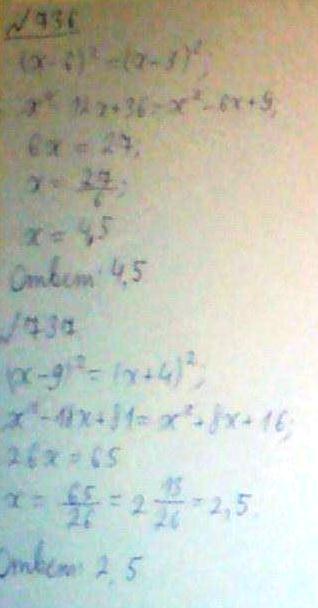 №736
(x-6)² = (x-3)²;
x² - 12x+36 = x² - 6x+9;
6x = 27;
x = 27/6;
x = 4,5
Ответ: 4,5
№737
(x-9)² = (x+4)²;
x² - 18x+81 = x² + 8x + 16;
26x = 65
x = 65/26 = 2 13/26 = 2,5.
Ответ: 2,5